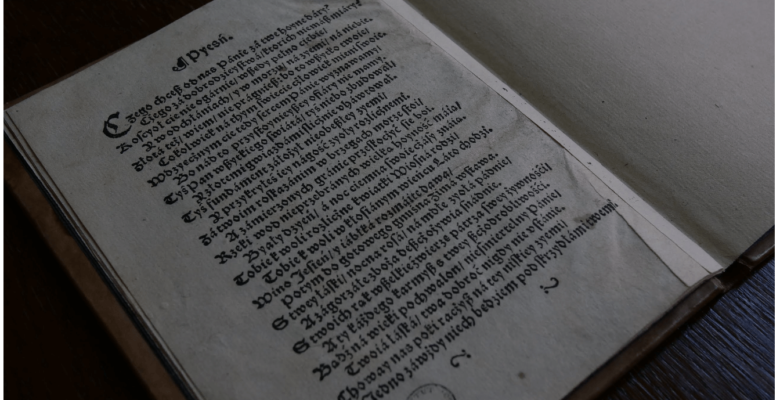 ¶ Pyeśń.
Czego chceß od nas Pánie zá twe hoyne dáry?
Czego zá dobrodzieystwá / ktorych niemáß miáry?
Kośćyoł cie nie ogárnie / wßędy pełno ciebie /
Y w odchłániách / y w morzu / ná źyemi / ná niebie.
Złotá też / wiem / nie prágnieß / bo to wßytko twoie /
Cokolwiek ná tym świecie człowiek mieni swoie.
Wdzyęcznym cie tedy sercem Pánie wyznawamy /
Bo nád to przystoynieyßey ofiáry nie mamy.
Tyś Pan wßytkiego świátá / tyś niebo zbudował /
Y złotemi gwiazdámi ślicznieś uháftował.
Tyś fundáment záłożył nieobeßłey źyemi /
Y przykryłeś iey nágość zyoły rozlicznemi.
Zá twoim roskazánim w brzegách morze stoi /
A zámierzonych gránic przeskoczyć sie boi.
Rzeki wod nieprzebránych wielką hoyność máią /
Byały dzyeń / á noc ciemna swoie czásy znáią.
Tobie k woli rozliczne kwiatki Wiosná rodzi /
Tobie k woli w kłosiánym wieńcu Láto chodzi.
Wino Jesień / y iábłká rozmáite dawa /
Potym do gotowego gnuśna zimá wstawa.
S twoy łáski / nocna rosá ná mdłe zyołá pádnie /
A zágorzáłe zboża deßcz ożywia snádnie.
S twoich rąk wßelkie źwierze pátrza swey żywnośći /
A ty káżdego karmyß s twey ßczodrobliwośći.
Bądź ná wieki pochwalon / nieśmiertelny Pánie /
Twoiá łáská / twa dobroć nigdy nie ustánie.
Choway nas poki raczyß ná tey niskiey źyemi /
Jedno záwżdy niech będziem pod skrzydłámi twemi.